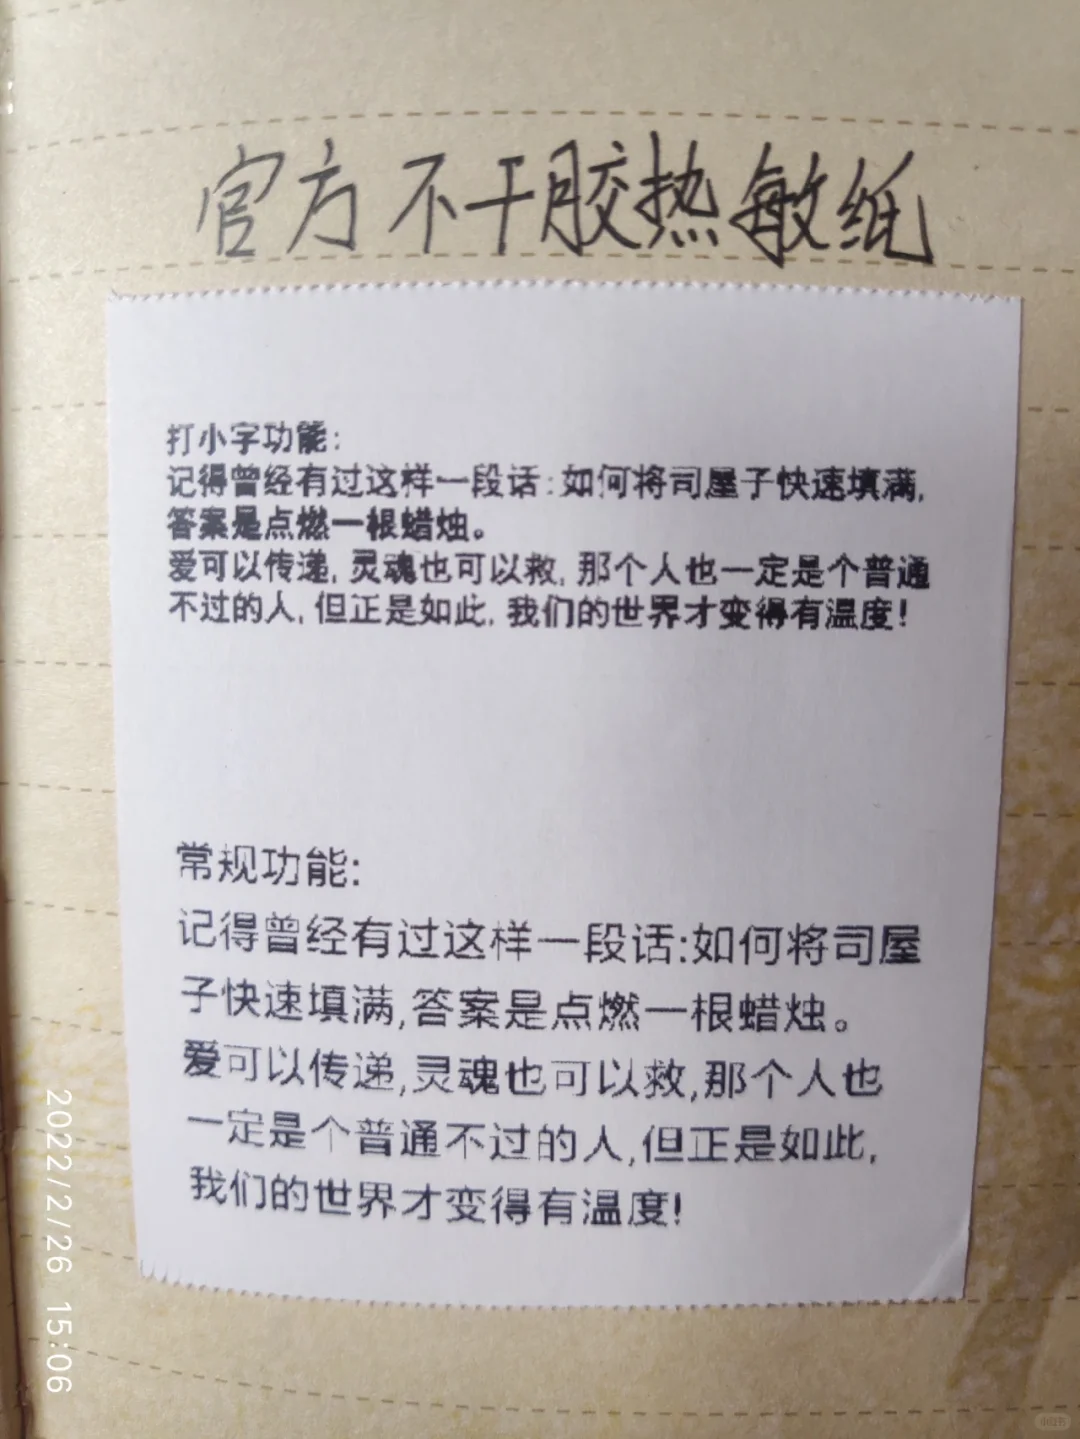 官方不干胶热敏纸
打小字功能:
记得曾经有过这样一段话:如何将司屋子快速填满,
答案是点燃一根蜡烛。
爱可以传递,灵魂也可以救,那个人也一定是个普通
不过的人,但正是如此,我们的世界才变得有温度!
常规功能:
记得曾经有过这样一段话:如何将司屋
子快速填满,答案是点燃一根蜡烛。
爱可以传递,灵魂也可以救,那个人也
一定是个普通不过的人,但正是如此,
我们的世界才变得有温度!
2022/2/26 15:06
小红书